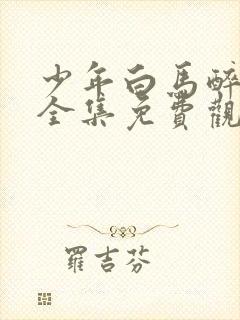 少年白馬醉
全集免費觀
羅吉芬